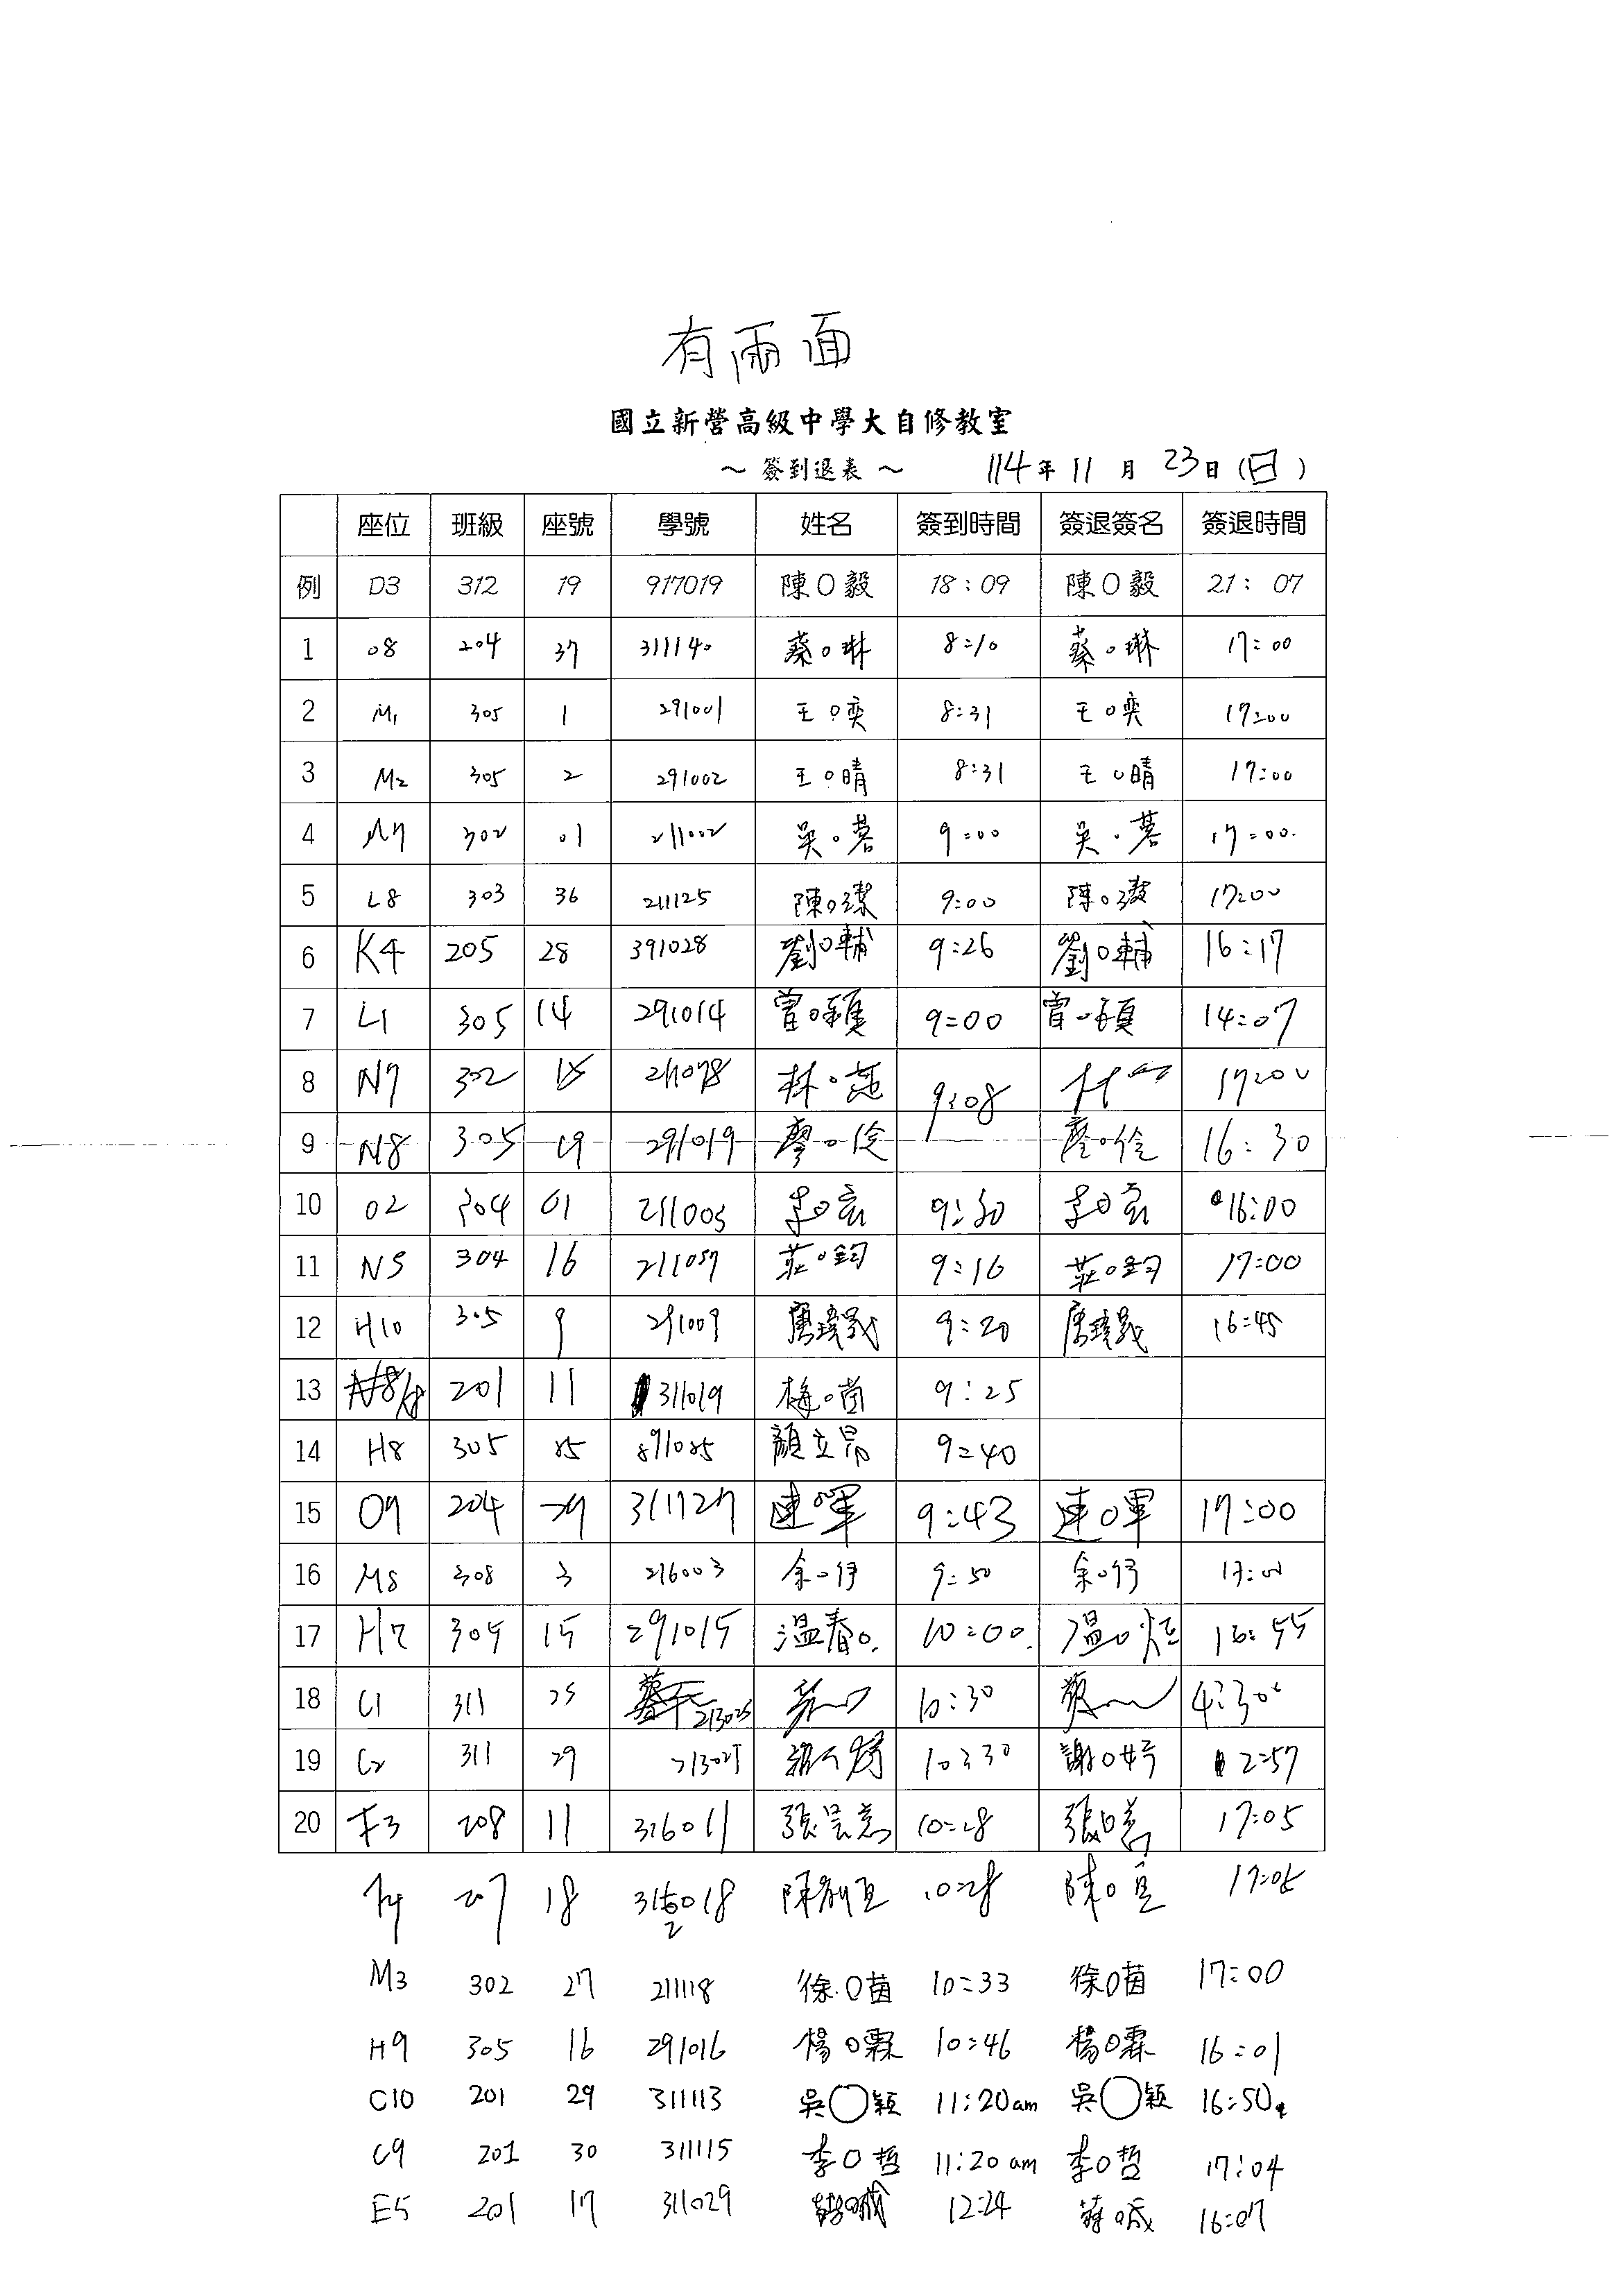 有兩面
國立新營高級中學大自修教室
～ 簽到退表 ～ 114年 11 月 23日 (日)
座位 班級 座號 學號 姓名 簽到時間 簽退簽名 簽退時間
例 D3 312 19 917019 陳○毅 18:09 陳○毅 21:07
1 08 204 37 311140 蔡○琳 8:10 蔡○琳 17:00
2 M1 305 1 291001 王○奕 8:31 王○奕 17:00
3 M2 305 2 291002 王○晴 8:31 王○晴 17:00
4 M7 302 01 211002 吳○蓉 9:00 吳○蓉 17:00
5 L8 303 36 211125 陳○潔 9:00 陳○潔 17:00
6 K4 205 28 391028 劉○輔 9:26 劉○輔 16:17
7 L1 305 14 291014 曾○ 9:00 曾○ 14:07
8 N7 302 211078 林○ 9:08 17:00
9 N8 305 19 291019 廖○佺 廖○佺 16:30
10 02 304 01 211005 李○宸 9:30 李○宸 16:00
11 N5 304 16 211057 莊○鈞 9:16 莊○鈞 17:00
12 H10 305 9 291009 唐 9:20 唐 16:45
13 201 11 311019 梅○茵 9:25
14 H8 305 顏立昂 9:40
15 O7 204 311127 連○軍 9:43 連○軍 17:00
16 M8 308 3 216003 余○伃 9:50 余○伃 17:00
17 H7 305 15 291015 溫春○ 10:00 溫○ 16:55
18 C1 311 25 213025 10:30 4:30
19 C2 311 29 10:30 謝○妤 2:57
20 F3 208 11 316011 張 10:28 張○ 17:05
F4 207 18 陳 10:28 陳○ 17:05
M3 302 27 211118 徐○茵 10:33 徐○茵 17:00
H9 305 16 291016 楊○霖 10:46 楊○霖 16:01
C10 201 29 311113 吳○穎 11:20am 吳○穎 16:50
C9 201 30 311115 李○哲 11:20 am 李○哲 17:04
E5 201 17 311029 12:24 蔣○ 16:07